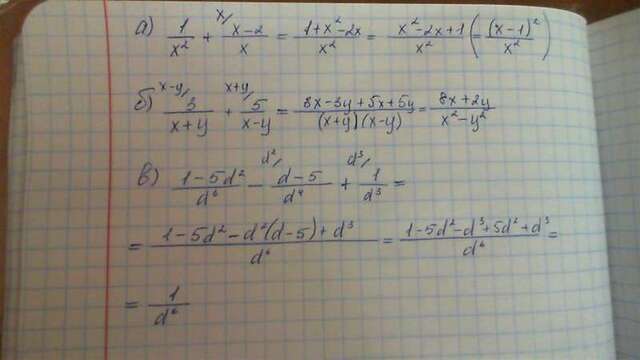 а) 1/x² + x/ (x-2)/x = (1+x²-2x)/x² = (x²-2x+1)/x² (= (x-1)²/x²)
б) x-y/ 3/(x+y) + x+y/ 5/(x-y) = (3x-3y+5x+5y)/((x+y)(x-y)) = (8x+2y)/(x²-y²)
в) (1-5d²)/d⁶ - d²/ (d-5)/d⁴ + d³/ 1/d³ =
= (1-5d²-d²(d-5)+d³)/d⁶ = (1-5d²-d³+5d²+d³)/d⁶ =
= 1/d⁶